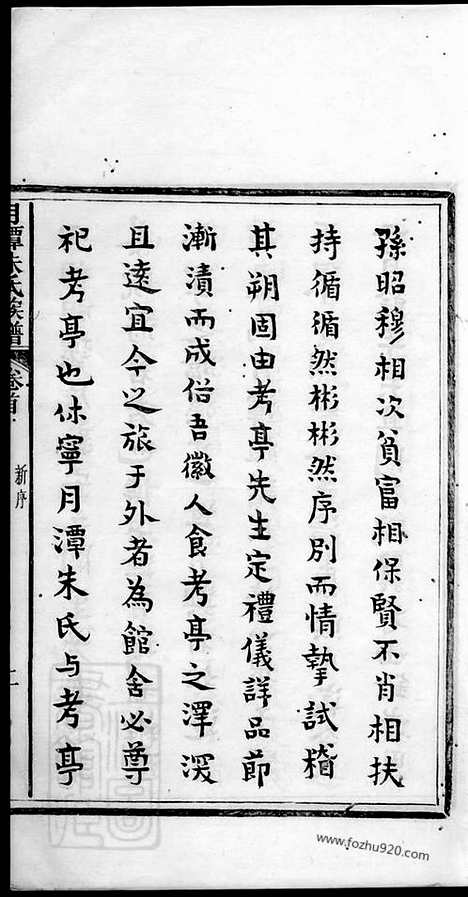 孫昭穆相次貧富相保賢不肖相扶
持循循然彬彬然序別而情摯試稽
其朔固由考亭先生定禮儀詳品節
漸漬而成俗吾徽人食考亭之澤深
且遠宜今之旅于外者為館舍必尊
祀考亭也休寧月潭朱氏与考亭
月潭朱氏族譜 卷首 新序 二
www.fozhu920.com